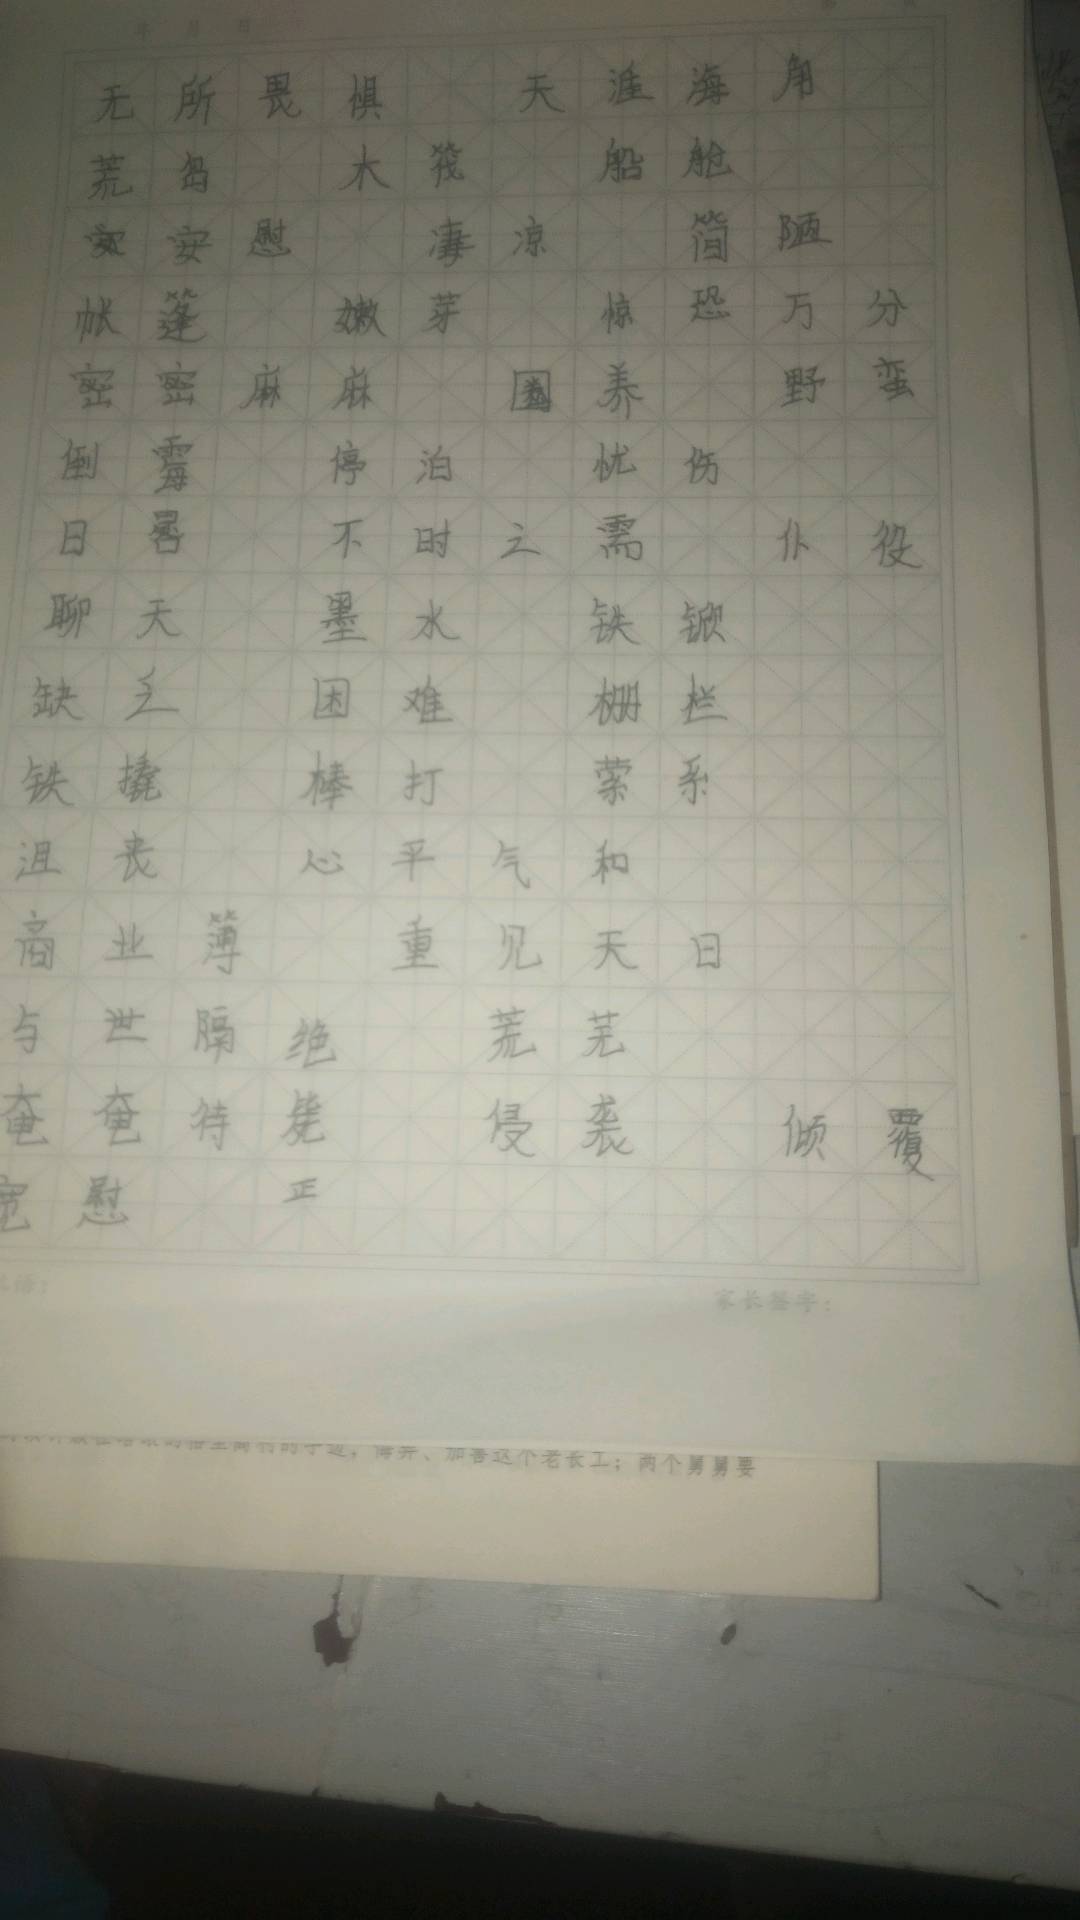 年 月 日
无所畏惧 天涯海角
荒岛 木筏 船舱
安慰 凄凉 简陋
帐篷 嫩芽 惊恐万分
密密麻麻 圈养 野蛮
倒霉 停泊 忧伤
日晷 不时之需 仆役
聊天 墨水 铁锨
缺乏 困难 栅栏
铁撬 棒打 萦系
沮丧 心平气和
商业簿 重见天日
与世隔绝 荒芜
奄奄待毙 侵袭 倾覆
宽慰 正
家长签字：
加害这个老长工；两个舅舅要